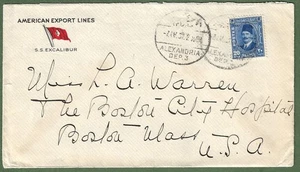 AMERICAN EXPORT LINES
S.S. EXCALIBUR
ALEXANDRIA
DEP. 3
Miss L. A. Warren
The Boston City Hospital
Boston Mass
U.S.A.